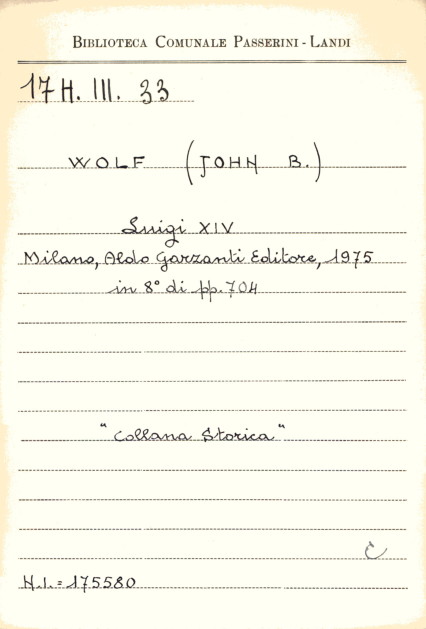 BIBLIOTECA COMUNALE PASSERINI - LANDI
17 H. III. 33
WOLF (JOHN B.)
Luigi XIV
Milano, Aldo Garzanti Editore, 1975
in 8° di pp. 704
"Collana Storica"
C
N.I. = 175580